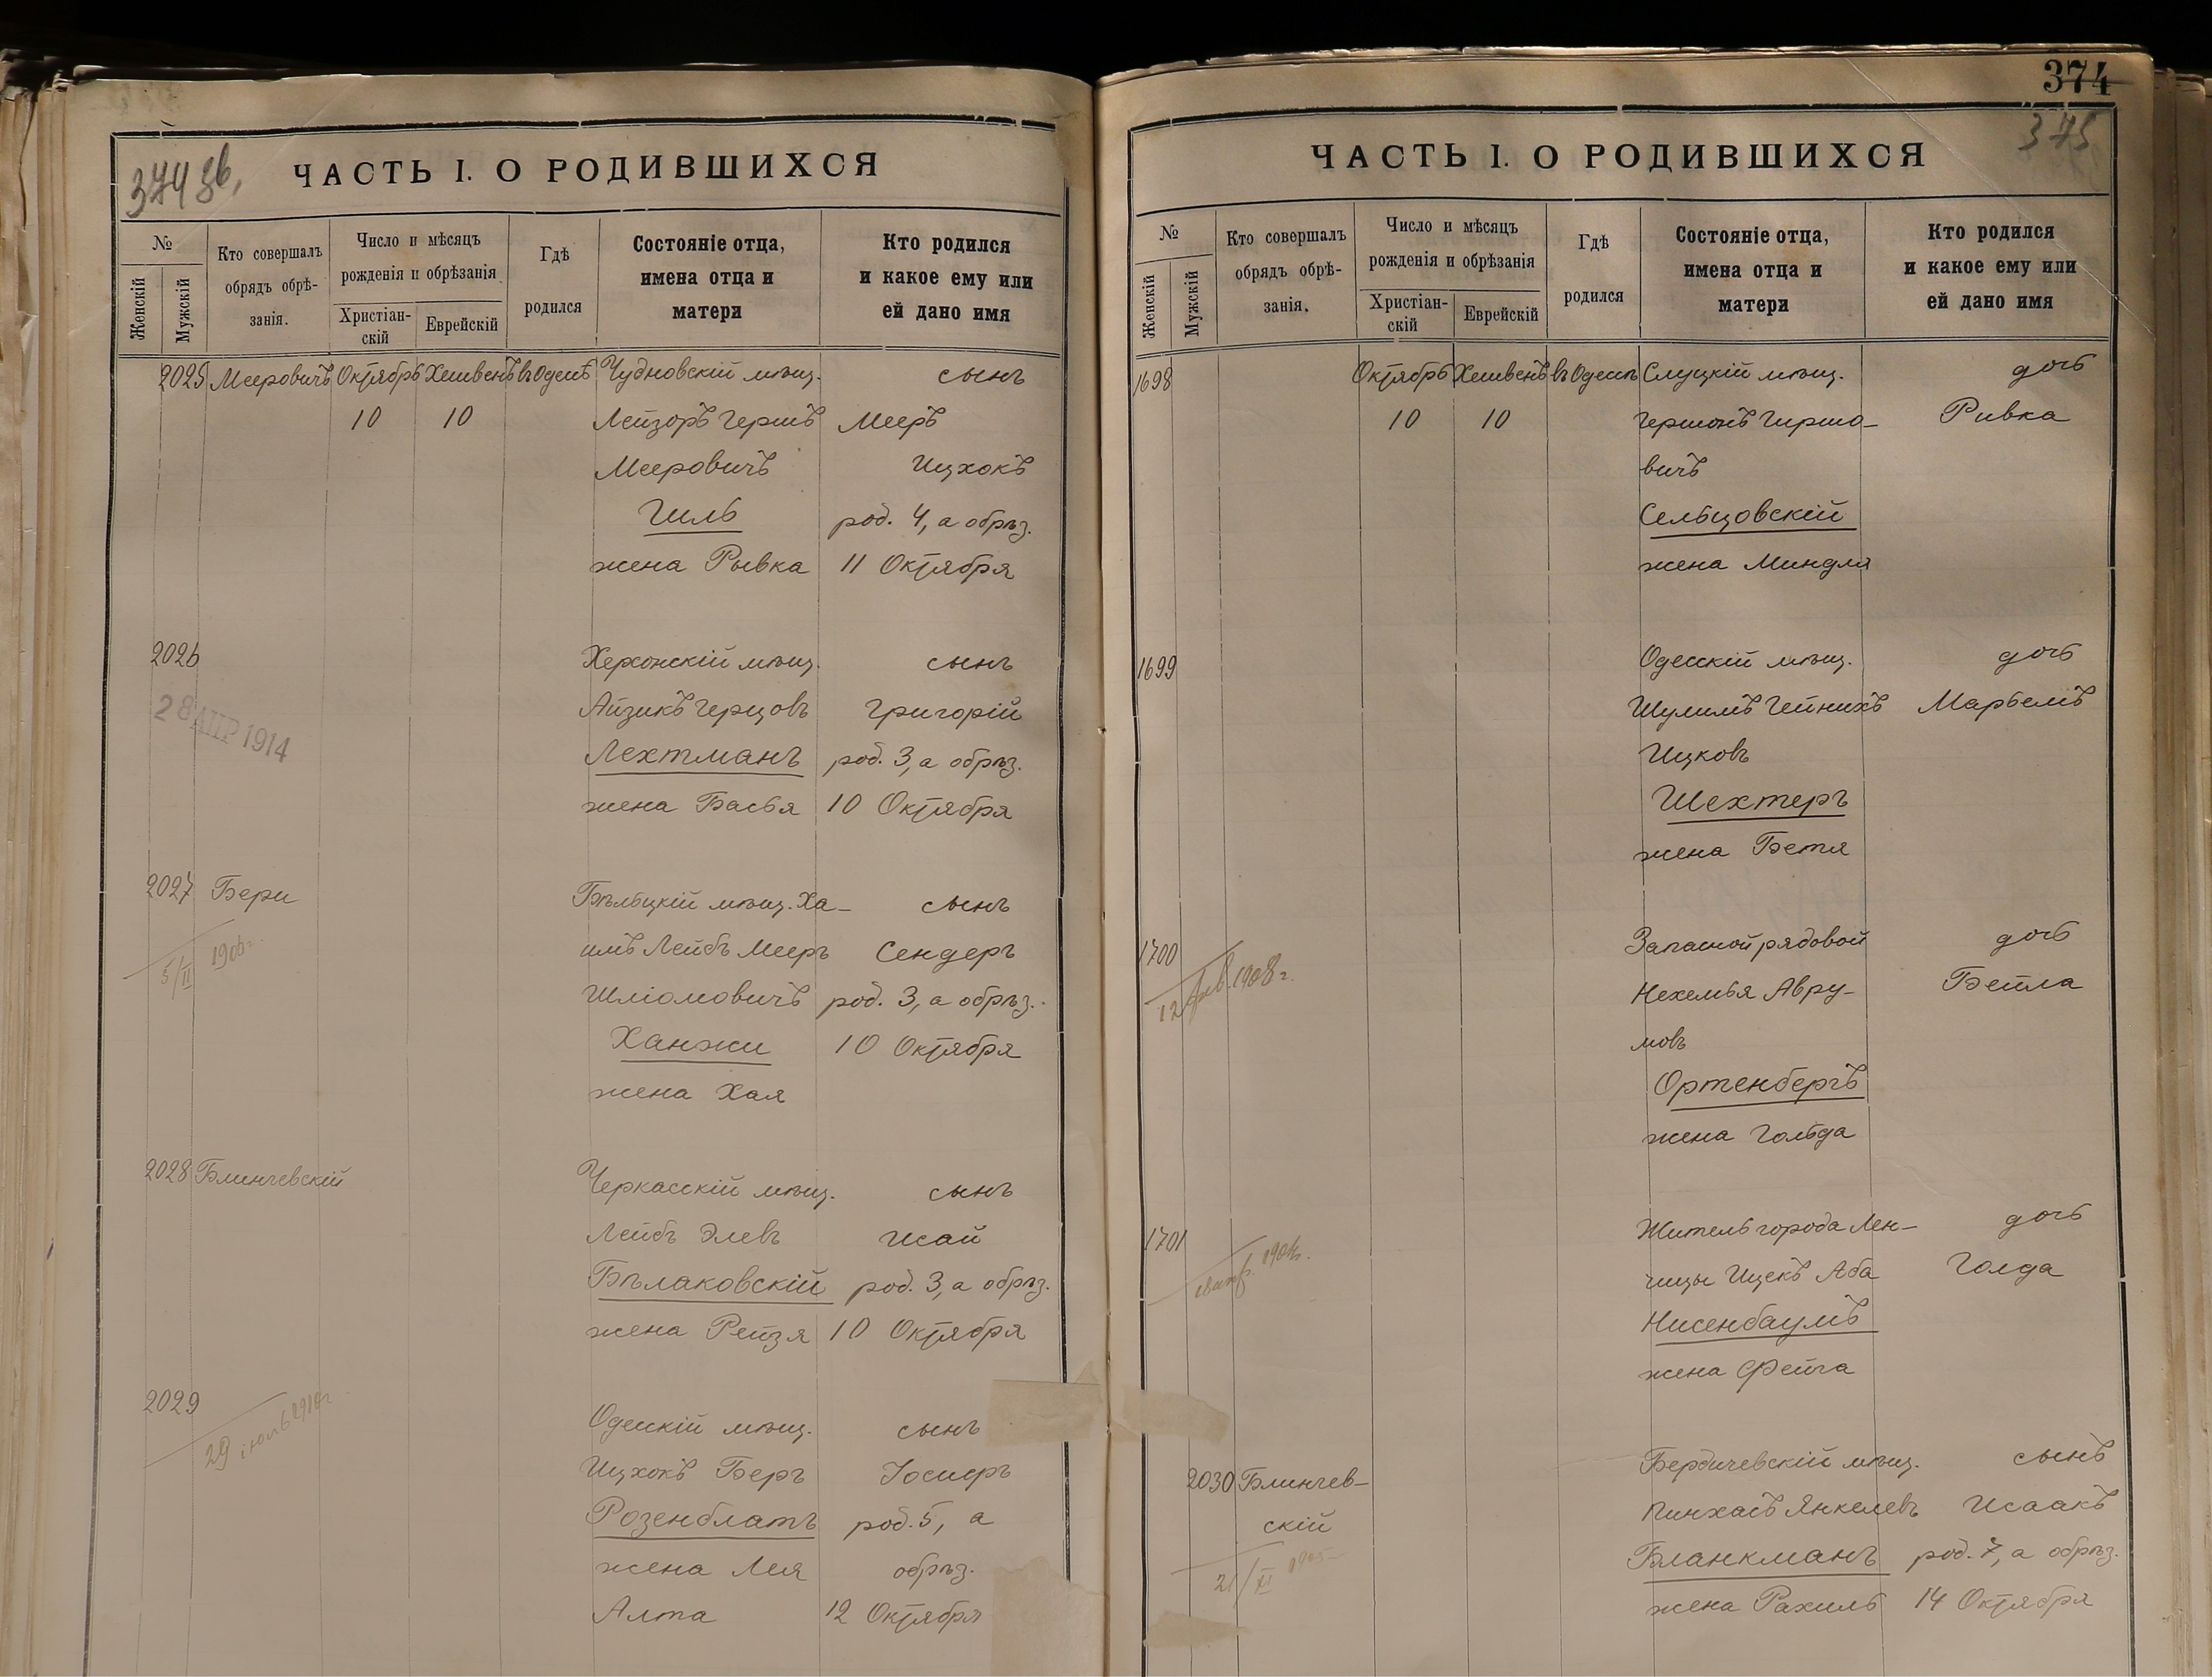 374 об.
ЧАСТЬ I. О РОДИВШИХСЯ
№
Женскій
Мужскій
Кто совершалъ
обрядъ обрѣ-
занія.
Число и мѣсяцъ
рожденія и обрѣзанія
Христіан-
скій
Еврейскій
Гдѣ
родился
Состояніе отца,
имена отца и
матери
Кто родился
и какое ему или
ей дано имя
2025 Мееровичъ Октябрь Хешвенъ въ Одессѣ Чудновскій мѣщ. сынъ
10 10 Лейзоръ Гершъ Мееръ
Мееровичъ Ицхокъ
Гиль род. 4, а обрѣз.
жена Рывка 11 Октября
2026 Херсонскій мѣщ. сынъ
28 АПР 1914
Айзикъ Герцовъ Григорій
Лехтманъ род. 3, а обрѣз.
жена Басья 10 Октября
2027 Бери Бѣльцкій мѣщ. Ха- сынъ
5/II 1906г.
имъ Лейбъ Мееръ Сендеръ
Шліомовичъ род. 3, а обрѣз.
Ханжи 10 Октября
жена Хая
2028 Блинчевскій Черкасскій мѣщ. сынъ
Лейбъ Элевъ Исай
Бѣлаковскій род. 3, а обрѣз.
жена Рейзя 10 Октября
2029 Одесскій мѣщ. сынъ
29
Ицхокъ Беръ Іосифъ
Розенблатъ род. 5, а
жена Лея обрѣз.
Алта 12 Октября
374
375
ЧАСТЬ I. О РОДИВШИХСЯ
№
Женскій
Мужскій
Кто совершалъ
обрядъ обрѣ-
занія.
Число и мѣсяцъ
рожденія и обрѣзанія
Христіан-
скій
Еврейскій
Гдѣ
родился
Состояніе отца,
имена отца и
матери
Кто родился
и какое ему или
ей дано имя
1698 Октябрь Хешвенъ въ Одессѣ Слуцкій мѣщ. дочь
10 10 Гершонъ Гиршо- Ривка
вичъ
Сельцовскій
жена Миндля
1699 Одесскій мѣщ. дочь
Шулимъ Гейнихъ Марьемъ
Ицковъ
Шехтеръ
жена Бетя
1700 Запасной рядовой дочь
12 фев. 1908 г.
Нехемья Авру- Бейла
мовъ
Ортенбергъ
жена Гольда
1701 Житель города Лен- дочь
чицы Ицекъ Аба Голда
Нисенбаумъ
жена Фейга
2030 Блинчев- Бердичевскій мѣщ. сынъ
скій Пинхасъ Янкелевъ Исаакъ
21/XI 1905
Бланкманъ род. 7, а обрѣз.
жена Рахиль 14 Октября